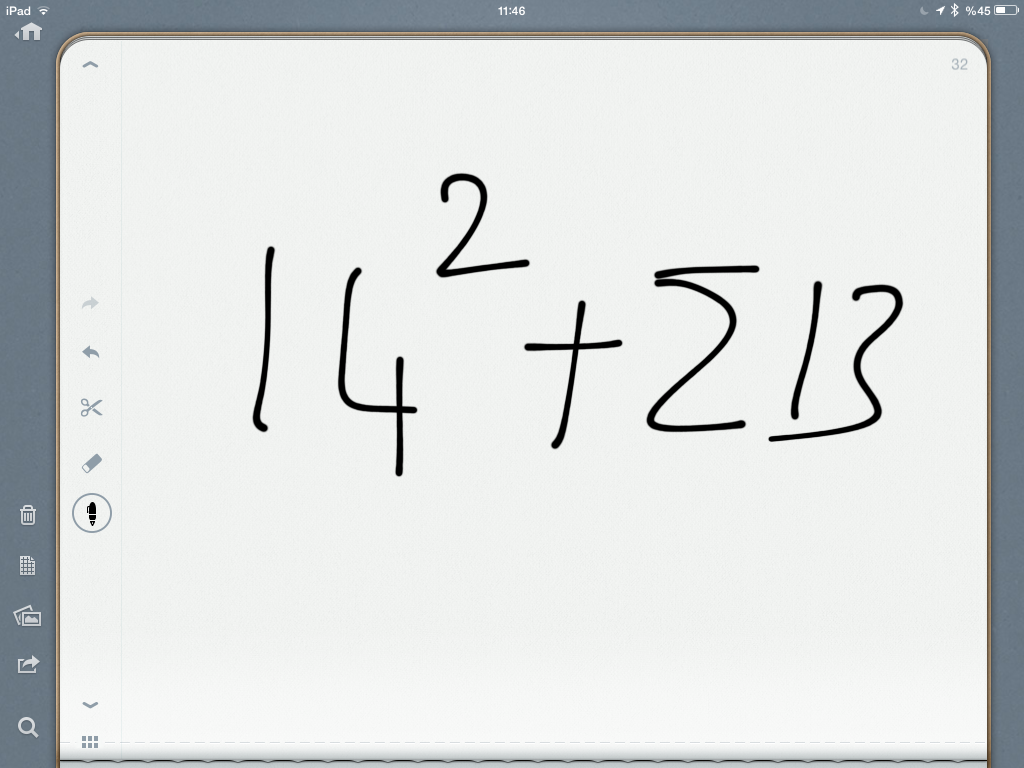 iPad 11:46 %45
32
14² + Σ13